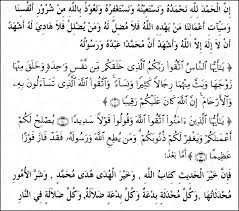 إِنَّ الْحَمْدَ لِلَّهِ نَحْمَدُهُ وَنَسْتَعِينُهُ وَنَسْتَغْفِرُهُ وَنَعُوذُ بِاللَّهِ مِنْ شُرُورِ أَنْفُسِنَا
وَسَيِّئَاتِ أَعْمَالِنَا مَنْ يَهْدِهِ اللَّهُ فَلاَ مُضِلَّ لَهُ وَمَنْ يُضْلِلْ فَلاَ هَادِيَ لَهُ أَشْهَدُ
أَنْ لاَ إِلَهَ إِلاَّ اللَّهُ وَأَشْهَدُ أَنَّ مُحَمَّدًا عَبْدُهُ وَرَسُولُهُ
يَٰأَيُّهَا النَّاسُ اتَّقُوا رَبَّكُمُ الَّذِي خَلَقَكُم مِّن نَّفْسٍ وَاحِدَةٍ وَخَلَقَ مِنْهَا
زَوْجَهَا وَبَثَّ مِنْهُمَا رِجَالًا كَثِيرًا وَنِسَاءً وَاتَّقُوا اللَّهَ الَّذِي تَسَاءَلُونَ بِهِ
وَالْأَرْحَامَ إِنَّ اللَّهَ كَانَ عَلَيْكُمْ رَقِيبًا
يَٰأَيُّهَا الَّذِينَ آمَنُوا اتَّقُوا اللَّهَ وَقُولُوا قَوْلًا سَدِيدًا يُصْلِحْ لَكُمْ
أَعْمَالَكُمْ وَيَغْفِرْ لَكُمْ ذُنُوبَكُمْ وَمَن يُطِعِ اللَّهَ وَرَسُولَهُ فَقَدْ فَازَ فَوْزًا
عَظِيمًا أَمَّا بَعْدُ:
فَإِنَّ خَيْرَ الْحَدِيثِ كِتَابُ اللَّهِ ، وَخَيْرَ الْهُدَى هُدَى مُحَمَّدٍ ، وَشَرَّ الْأُمُورِ
مُحْدَثَاتُهَا ، وَكُلَّ مُحْدَثَةٍ بِدْعَةٌ وَكُلَّ بِدْعَةٍ ضَلاَلَةٌ، وَكُلَّ ضَلاَلَةٍ فِي النَّارِ